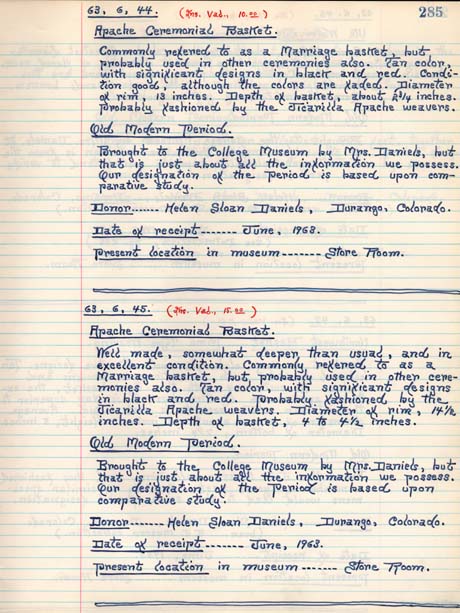 285
63, 6, 44. (Ins. Val., 10.00)
Apache Ceremonial Basket.
Commonly refered to as a Marriage basket, but
probably used in other ceremonies also. Tan color,
with significant designs in black and red. Condi-
tion good, although the colors are faded. Diameter
of rim, 13 inches. Depth of basket, about inches.
Probably fashioned by the Jicarilla Apache weavers.
Old Modern Period.
Brought to the College Museum by Mrs. Daniels, but
that is just about all the information we possess.
Our designation of the Period is based upon com-
parative study.
Donor------- Helen Sloan Daniels, Durango, Colorado.
Date of receipt------- June, 1963.
Present location in museum------- Store Room.
63, 6, 45. (Ins. Val., 15.00)
Apache Ceremonial Basket.
Well made, somewhat deeper than usual, and in
excellent condition. Commonly refered to as a
Marriage basket, but probably used in other cere-
monies also. Tan color, with significant designs
in black and red. Probably fashioned by the
Jicarilla Apache weavers. Diameter of rim, 14½
inches. Depth of basket, 4 to 4½ inches.
Old Modern Period.
Brought to the College Museum by Mrs. Daniels, but
that is just about all the information we possess.
Our designation of the Period is based upon
comparative study.
Donor------ Helen Sloan Daniels, Durango, Colorado.
Date of receipt------- June, 1963.
Present location in museum ------- Store Room.